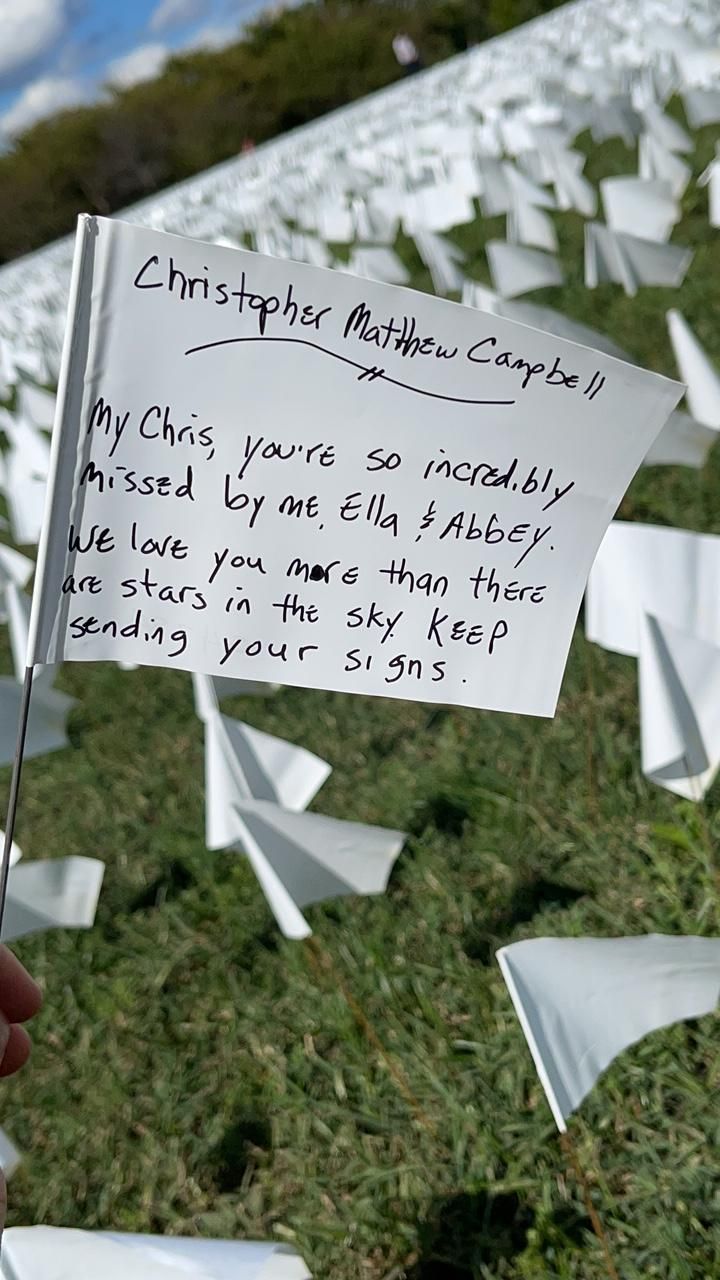 Christopher Matthew Campbell
My Chris, you're so incredibly
missed by me, Ella & Abbey.
We love you more than there
are stars in the sky. Keep
sending your signs.